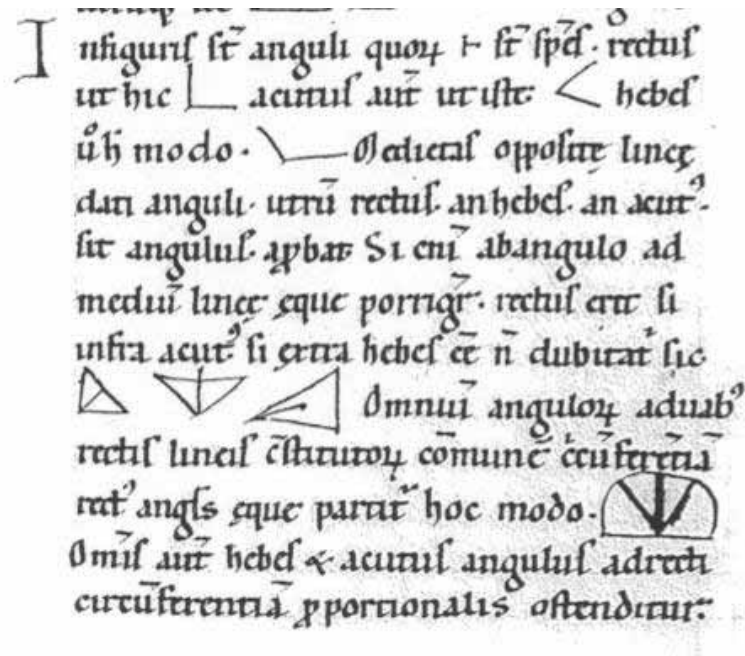 In figuris st̄ anguli quoꝝ ⊢ st̄ spēs. rectus
ut hic acutus aut̄ ut iste. hebes
ů h̄ modo. Medietas opposite lineę
dati anguli. utrū rectus. an hebes. an acut᷒.
sit angulus. ꝓbat. Si eni̅ ab angulo ad
mediu̅ lineę ęque porrigr̄. rectus erit si
infra acut᷒. si extra hebes eē n̄ dubitat᷑ sic.
Omniu̅ anguloꝝ a duab᷒
rectis lineis c̄stitutoꝝ cōmunē c̄cūferētiā
rect᷒ angls ęque partit᷑ hoc modo.
Omīs aut̄ hebes & acutus angulus ad recti
circūferentiā ꝓportionalis ostenditur.